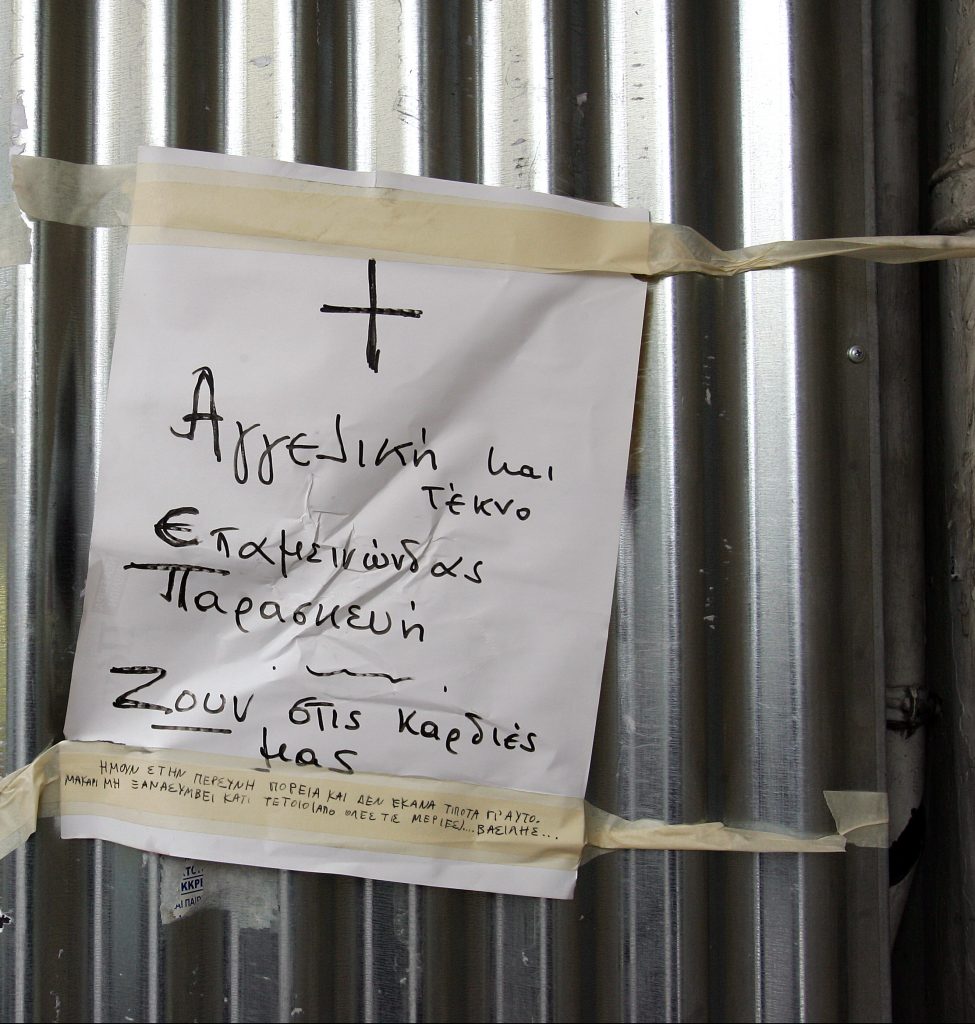 Αγγελική και
τέκνο
Επαμεινώνδας
Παρασκευή
Ζουν στις καρδιές
μας
ΗΜΟΥΝ ΣΤΗΝ ΠΕΡΣΥΝΗ ΠΟΡΕΙΑ ΚΑΙ ΔΕΝ ΕΚΑΝΑ ΤΙΠΟΤΑ ΓΙ' ΑΥΤΟ.
ΜΑΚΑΡΙ ΜΗ ΞΑΝΑΣΥΜΒΕΙ ΚΑΤΙ ΤΕΤΟΙΟ(ΑΠΟ ΟΛΕΣ ΤΙΣ ΜΕΡΙΕΣ)....ΒΑΣΙΛΗΣ...
ΚΚΡΙ